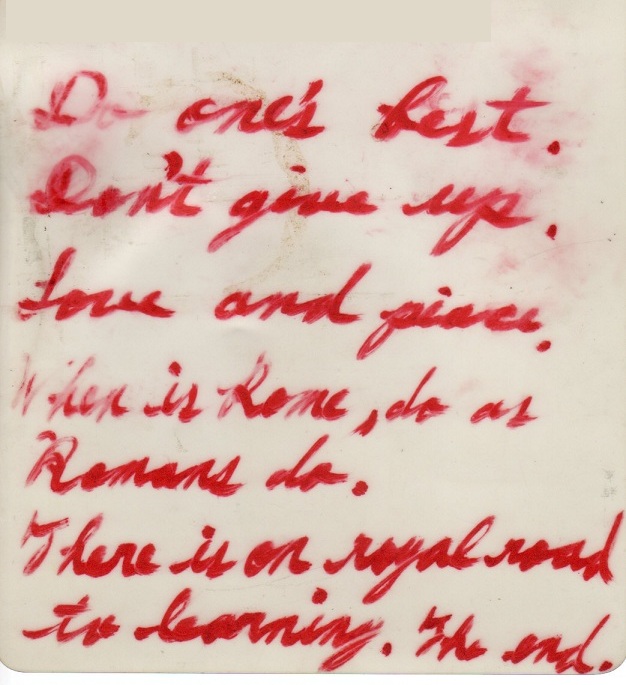 Do one's best.
Don't give up.
Love and piace.
When is Rome, do as
Romans do.
There is on royal road
to learning. The end.